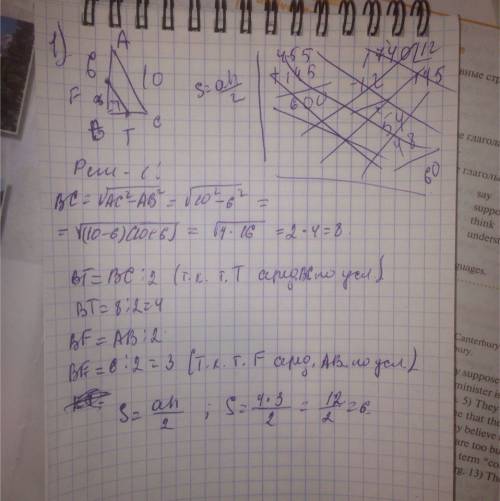 1)
A
6
10
F
B
T
C
S = ah/2
455
+ 145
600
1740 | 12
12
145
54
48
60
Реш - е:
BC = √(AC² - AB²) = √(10² - 6²) =
= √((10-6)(10+6)) = √(4 · 16) = 2 · 4 = 8
BT = BC : 2 (т.к. т. T серед. BC по усл.)
BT = 8 : 2 = 4
BF = AB : 2
BF = 6 : 2 = 3 (т.к. т. F серед. AB по усл.)
S = ah/2 ; S = 4·3/2 = 12/2 = 6
say
suppo
think
underst
nguages.
Canterbury
bury.
suppose
minister is
5) They
e that the
believe
are too bu
term "co
rg. 13) The